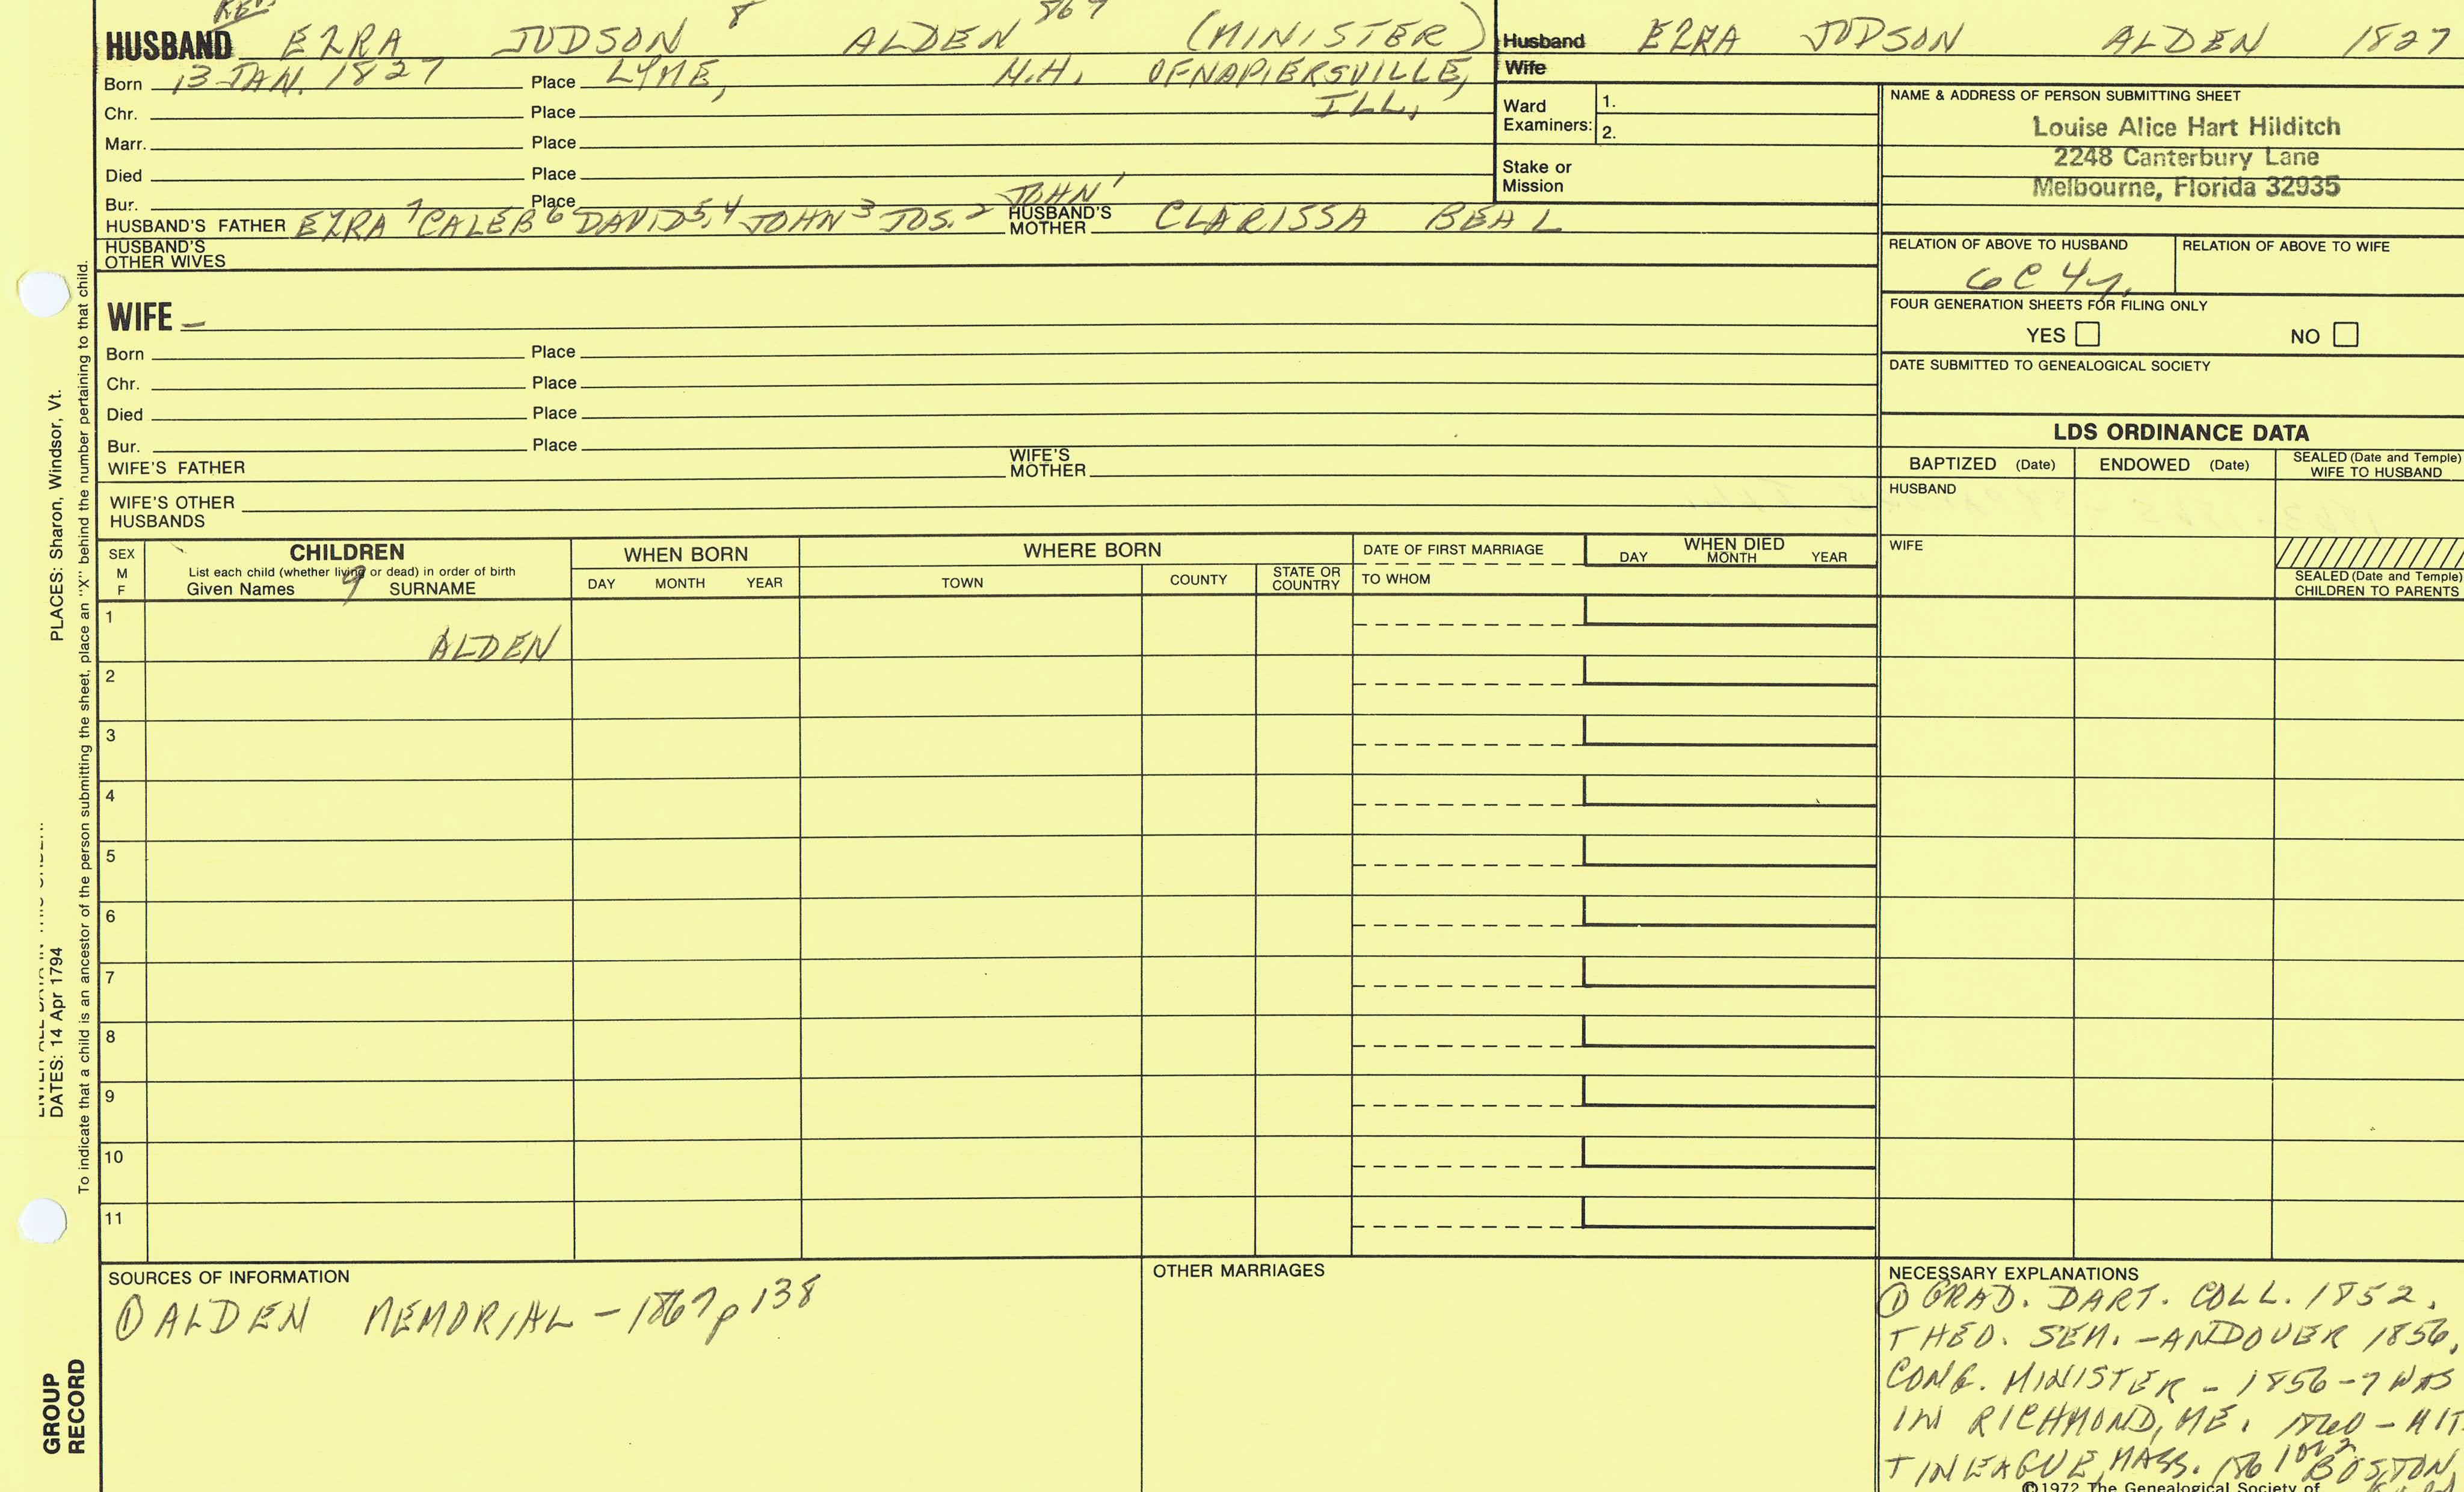 REV.
HUSBAND EZRA JUDSON 8 ALDEN 867 (MINISTER)
Born 13 JAN. 1827 Place LYME, N.H. OF NAPIERSVILLE,
Chr. Place ILL.
Marr. Place
Died Place
Bur. Place
HUSBAND'S FATHER EZRA 7 CALEB 6 DAVID 5,4 JOHN 3 JOS. 2 JOHN 1 HUSBAND'S MOTHER CLARISSA BEAL
HUSBAND'S OTHER WIVES
WIFE –
Born Place
Chr. Place
Died Place
Bur. Place
WIFE'S FATHER WIFE'S MOTHER
WIFE'S OTHER HUSBANDS
Husband EZRA JUDSON ALDEN 1827
Wife
Ward Examiners: 1.
2.
Stake or Mission
NAME & ADDRESS OF PERSON SUBMITTING SHEET
Louise Alice Hart Hilditch
2248 Canterbury Lane
Melbourne, Florida 32935
RELATION OF ABOVE TO HUSBAND RELATION OF ABOVE TO WIFE
6C4
FOUR GENERATION SHEETS FOR FILING ONLY
YES NO
DATE SUBMITTED TO GENEALOGICAL SOCIETY
LDS ORDINANCE DATA
BAPTIZED (Date) ENDOWED (Date) SEALED (Date and Temple) WIFE TO HUSBAND
HUSBAND
WIFE
SEALED (Date and Temple) CHILDREN TO PARENTS
SEX M F
CHILDREN
List each child (whether living or dead) in order of birth
Given Names 9 SURNAME
WHEN BORN
DAY MONTH YEAR
WHERE BORN
TOWN COUNTY STATE OR COUNTRY
DATE OF FIRST MARRIAGE
TO WHOM
WHEN DIED
DAY MONTH YEAR
1 ALDEN
2
3
4
5
6
7
8
9
10
11
SOURCES OF INFORMATION
① ALDEN MEMORIAL – 1867 p 138
OTHER MARRIAGES
NECESSARY EXPLANATIONS
① GRAD. DART. COLL. 1852.
THEO. SEM. – ANDOVER 1856,
CONG. MINISTER – 1856-7 WAS
IN RICHMOND, ME. 1860 –
MASS. BOSTON,
©1972 The Genealogical Society of
PLACES: Sharon, Windsor, Vt.
DATES: 14 Apr 1794
To indicate that a child is an ancestor of the person submitting the sheet, place an "X" behind the number pertaining to that child.
GROUP RECORD